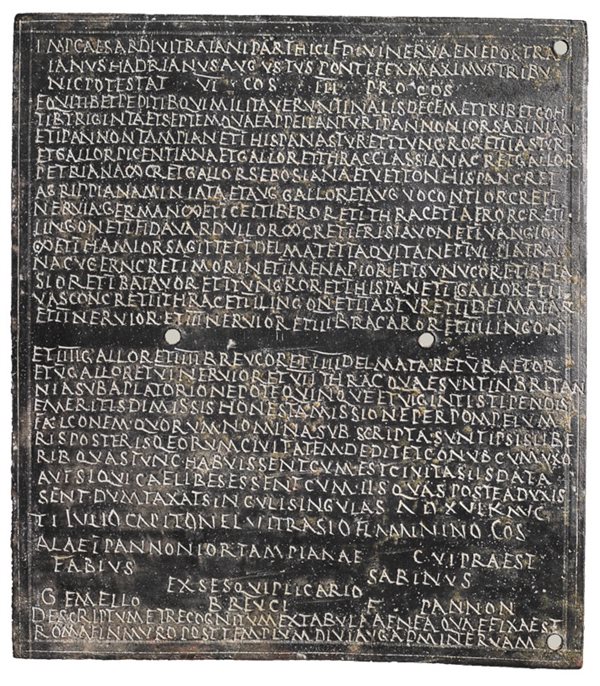 IMP CAESAR DIVI TRAIANI PARTHICI F DIVI NERVAE NEPOS TRA
IANVS HADRIANVS AVGVSTVS PONTIFEX MAXIMVS TRIBV
NIC POTESTAT VI COS III PRO COS
EQVITIB ET PEDITIB QVI MILITAVERVNT IN ALIS DECEM ET TRIB ET COH
TIB TRIGINTA ET SEPTEM QVAE APPELLANTVR I PANNONIOR SABINIAN
ET I PANNON TAMPIAN ET I HISPAN ASTVR ET I TVNGROR ET II ASTVR
ET GALLOR PICENTIANA ET GALLOR ET THRAC CLASSIANA C R ET GALLOR
PETRIANA ∞ C R ET GALLOR SEBOSIANA ET VETTON HISPAN C R ET
AGRIPPIANA MINIATA ET AVG GALLOR ET AVG VOCONTIOR C R ET I
NERVIA GERMAN ∞ ET I CELTIBEROR ET I THRAC ET I AFROR C R ET I
LINGON ET I FID VARDVLLOR ∞ C R ET I FRISIAVON ET I VANGION
∞ ET I HAMIOR SAGITT ET I DELMAT ET I AQVITAN ET I VLPIA TRAIA
NA CVGERN C R ET I MORIN ET I MENAPIOR ET I SVNVCOR ET I BETA
SIOR ET I BATAVOR ET I TVNGROR ET I HISPAN ET II GALLOR ET II
VASCON C R ET II THRAC ET II LINGON ET II ASTVR ET II DELMATAR
ET II NERVIOR ET III NERVIOR ET III BRACAROR ET III LINGON
ET IIII GALLOR ET IIII BREVCOR ET IIII DELMATAR ET V RAETOR
ET V GALLOR ET VI NERVIOR ET VII THRAC QVAE SVNT IN BRITAN
NIA SVB A PLATORIO NEPOTE QVINQVE ET VIGINTI STIPENDIS
EMERITIS DIMISSIS HONESTA MISSIONE PER POMPEIVM
FALCONEM QVORVM NOMINA SVBSCRIPTA SVNT IPSIS LIBE
RIS POSTERISQ EORVM CIVITATEM DEDIT ET CONVB CVM VXO
RIB QVAS TVNC HABVISSENT CVM EST CIVITAS IIS DATA
AVT SIQVI CAELIBES ESSENT CVM IIS QVAS POSTEA DVXIS
SENT DVMTAXAT SINGVLI SINGVLAS A D XVI K AVG
TI IVLIO CAPITONE L VITRASIO FLAMININO COS
ALAE I PANNONIOR TAMPIANAE CVI PRAEST
FABIVS SABINVS
EX SESQVIPLICARIO
GEMELLO BREVCI F PANNON
DESCRIPTVM ET RECOGNITVM EX TABVLA AENEA QVAE FIXA EST
ROMAE IN MVRO POST TEMPLVM DIVI AVG AD MINERVAM